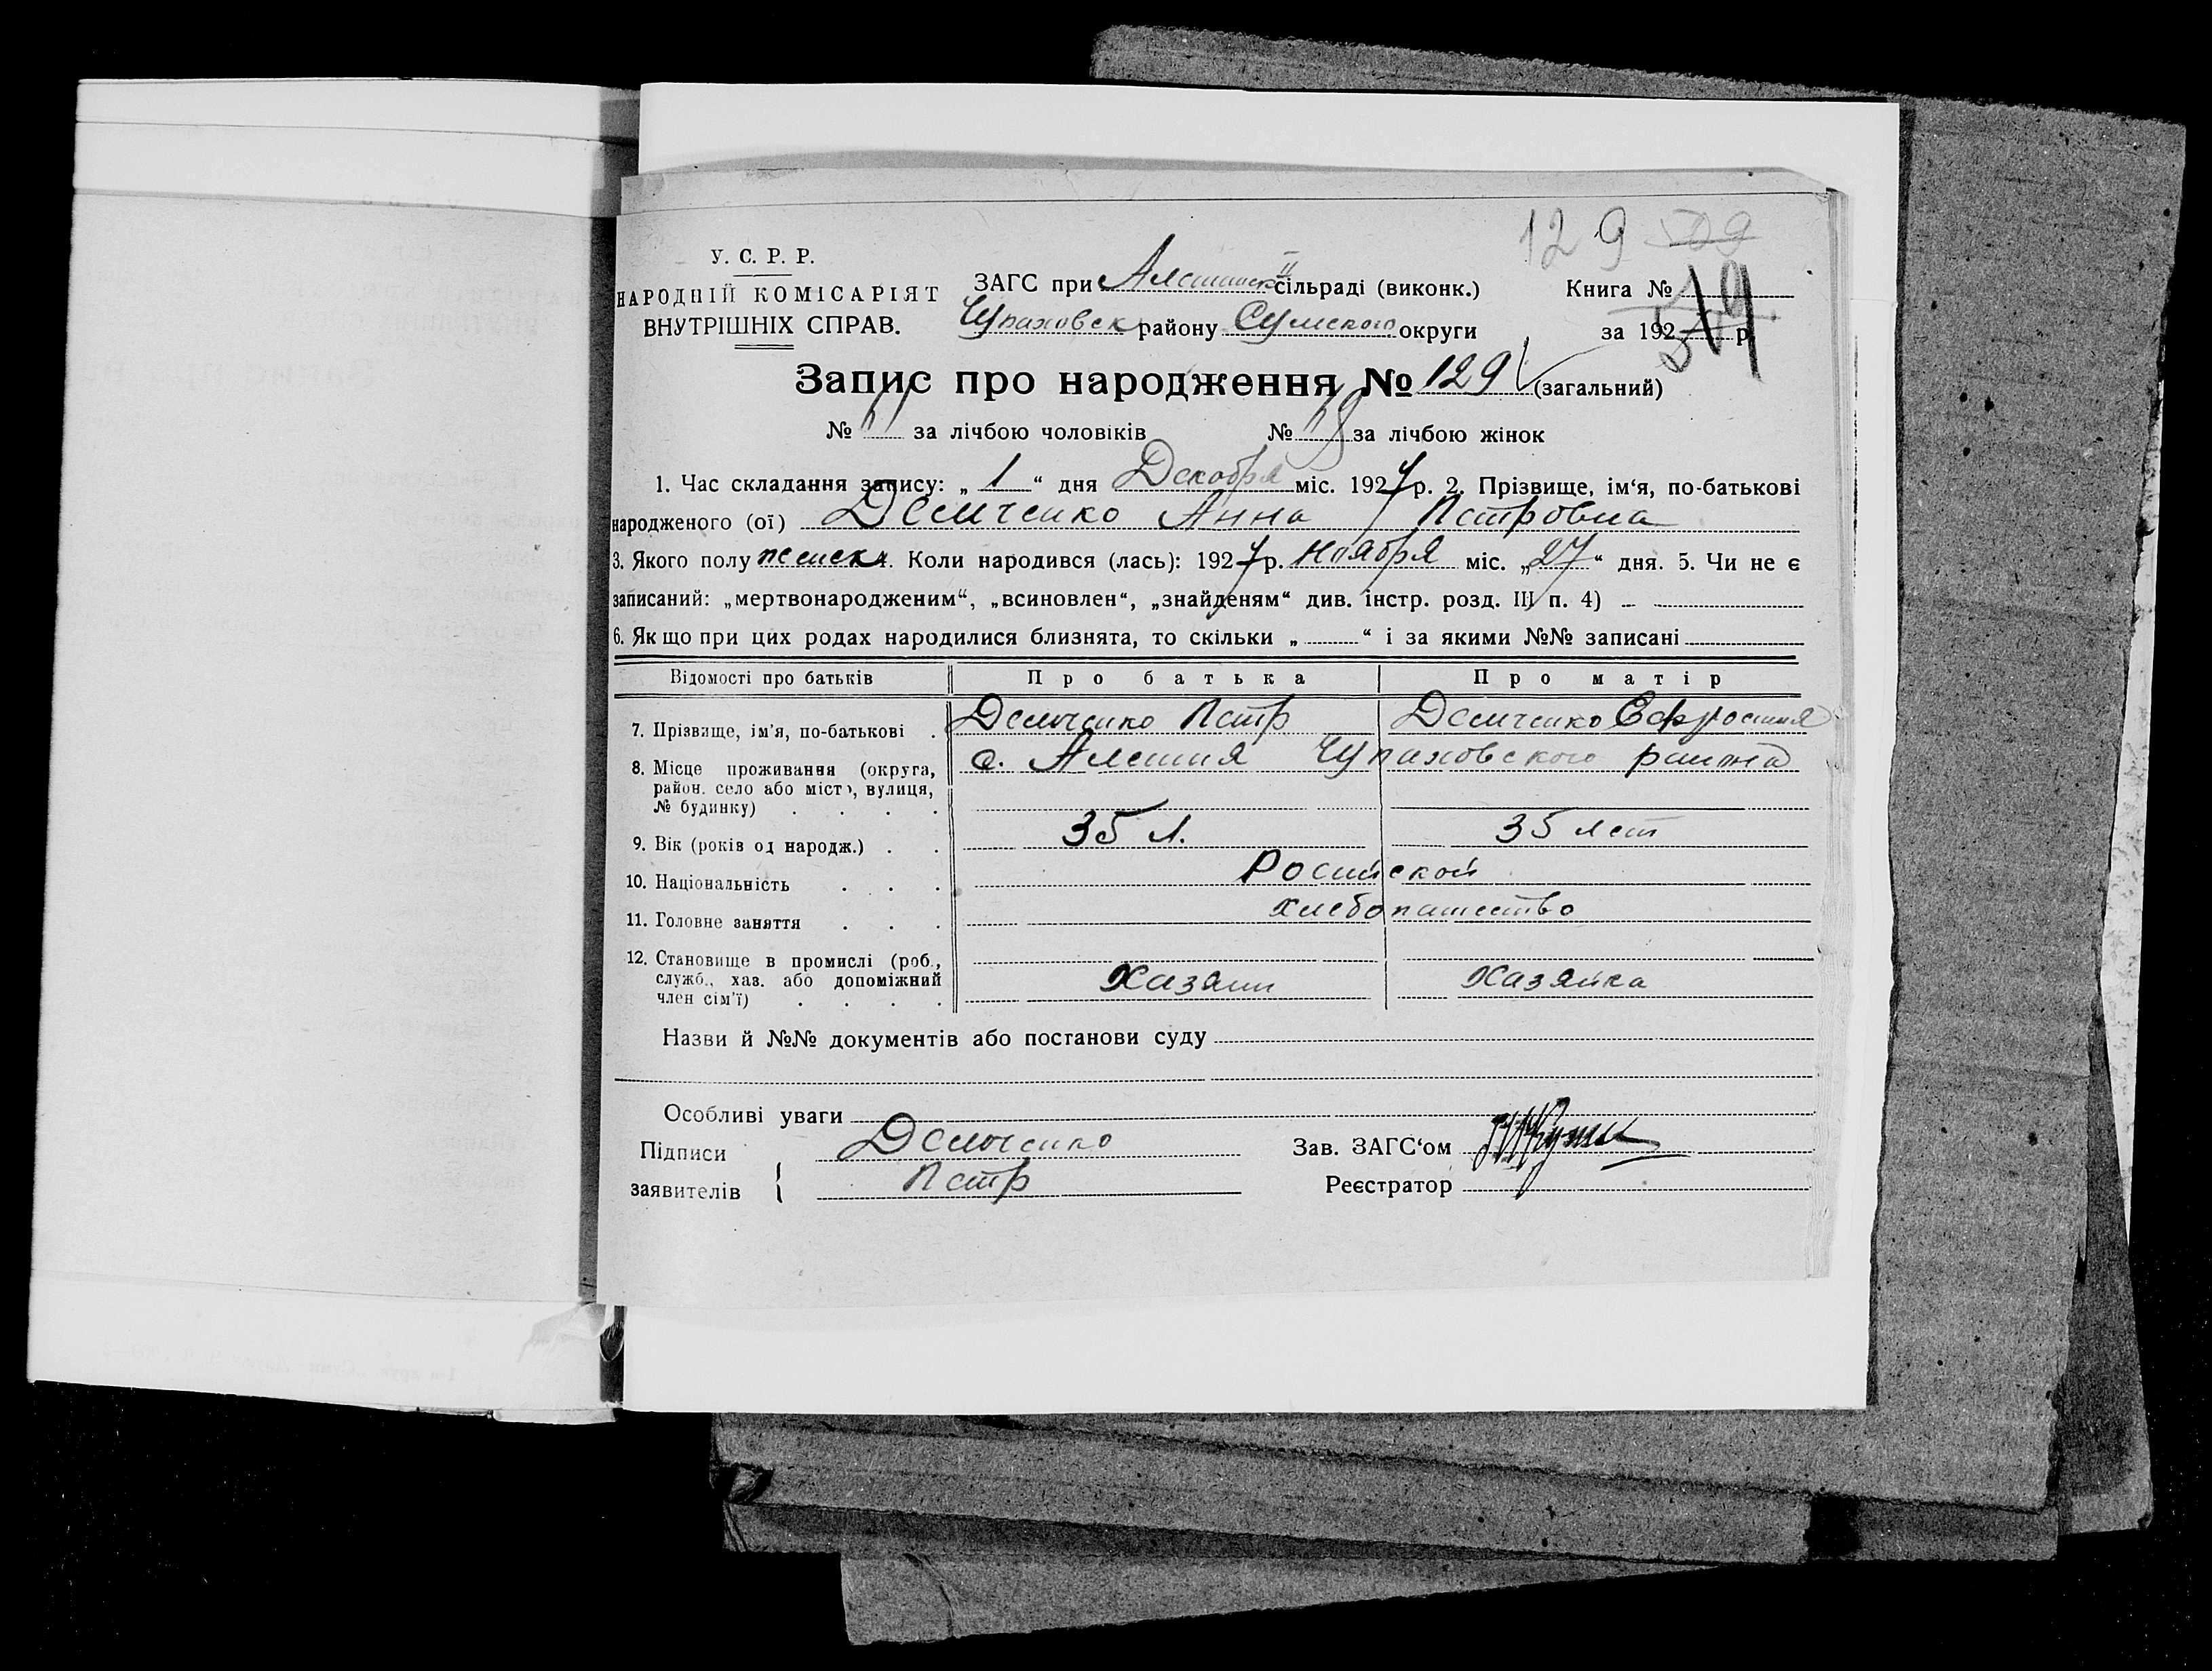 129 509
У. С. Р. Р.
НАРОДНІЙ КОМІСАРІЯТ
ВНУТРІШНІХ СПРАВ.
ЗАГС при Алешинск II сільраді (виконк.)
Чупаховск району Сумского округи
Книга №
за 192 р.
Запис про народження № 129 (загальний)
№ за лічбою чоловіків № за лічбою жінок
1. Час складання запису: „ 1 “ дня Декабря міс. 1927 р. 2. Прізвище, ім‘я, по-батькові
народженого (ої) Демченко Анна Петровна
3. Якого полу женск. Коли народився (лась): 1927 р. Ноября міс. „27“ дня. 5. Чи не є
записаний: „мертвонародженим“, „всиновлен“, „знайденям“ див. інстр. розд. III п. 4)
6. Якщо при цих родах народилися близнята, то скільки „ “ і за якими №№ записані
Відомості про батьків Про батька Про матір
7. Прізвище, ім'я, по-батькові . Демченко Петр Демченко Ефросиния
8. Місце проживання (округа, с. Алешня Чупаховского раиона
район. село або місто, вулиця,
№ будинку) . . . .
9. Вік (років од народж.) . . 35 л. 35 лет
10. Національність . . . Росииской
11. Головне заняття . . . хлебопашество
12. Становище в промислі (роб.,
служб., хаз. або допоміжний Хазяин Хазяйка
член сім'ї) . . . .
Назви й №№ документів або постанови суду
Особливі уваги
Підписи Демченко Зав. ЗАГС‘ом
заявителів Петр Реєстратор